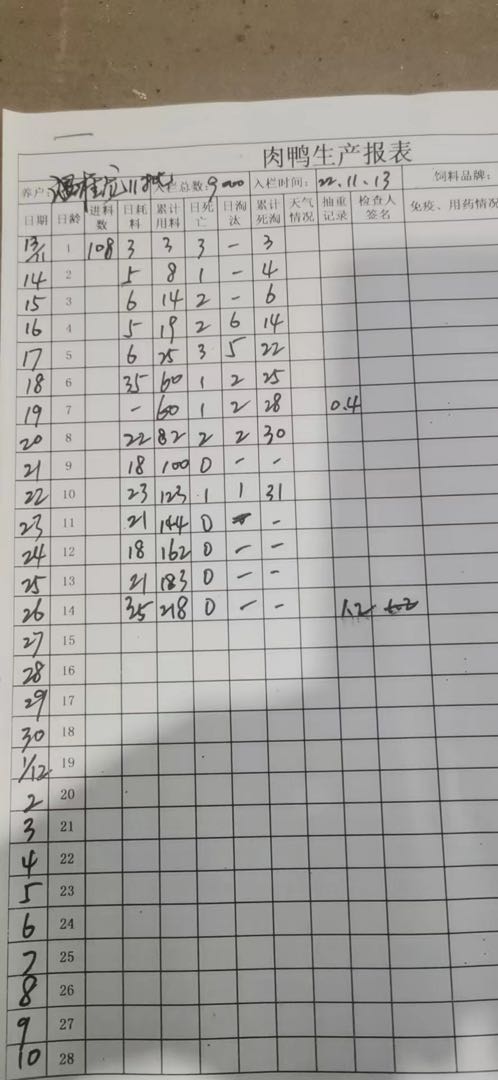 肉鸭生产报表
养户: 11批 入栏总数:9000 入栏时间: 22.11.13 饲料品牌:
日期 日龄 进料数 日耗料 累计用料 日死亡 日淘汰 累计死淘 天气情况 抽重记录 检查人签名 免疫、用药情况
13/11 1 108 3 3 3 - 3
14 2 5 8 1 - 4
15 3 6 14 2 - 6
16 4 5 19 2 6 14
17 5 6 25 3 5 22
18 6 35 60 1 2 25
19 7 - 60 1 2 28 0.4
20 8 22 82 2 2 30
21 9 18 100 0 - -
22 10 23 123 1 1 31
23 11 21 144 0 - -
24 12 18 162 0 - -
25 13 21 183 0 - -
26 14 35 218 0 - - 1.2
27 15
28 16
29 17
30 18
1/12 19
2 20
3 21
4 22
5 23
6 24
7 25
8 26
9 27
10 28